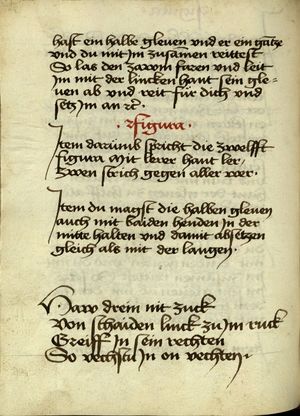 hast ein halbe gleuen vnd er ein gantze
vnd du mit im zusamen reittest
So las den zawm faren vnd leit
im mit der lincken hant sein gle-
uen ab vnd reit für dich vnd
setz im an rc
· Figura ·
Item darümb spricht die zwelfft
figura Mit lerer hant ler
zwen strich gegen aller wer ·
Item du magst die halben gleuen
auch mit baiden henden in der
mitte halten vnd damit absetzen
gleich als mit der langen ·
Haw drein nit zuck
Von schaiden linck zu im ruck
Greiff in sein rechten
So vechstu in on vechten ·